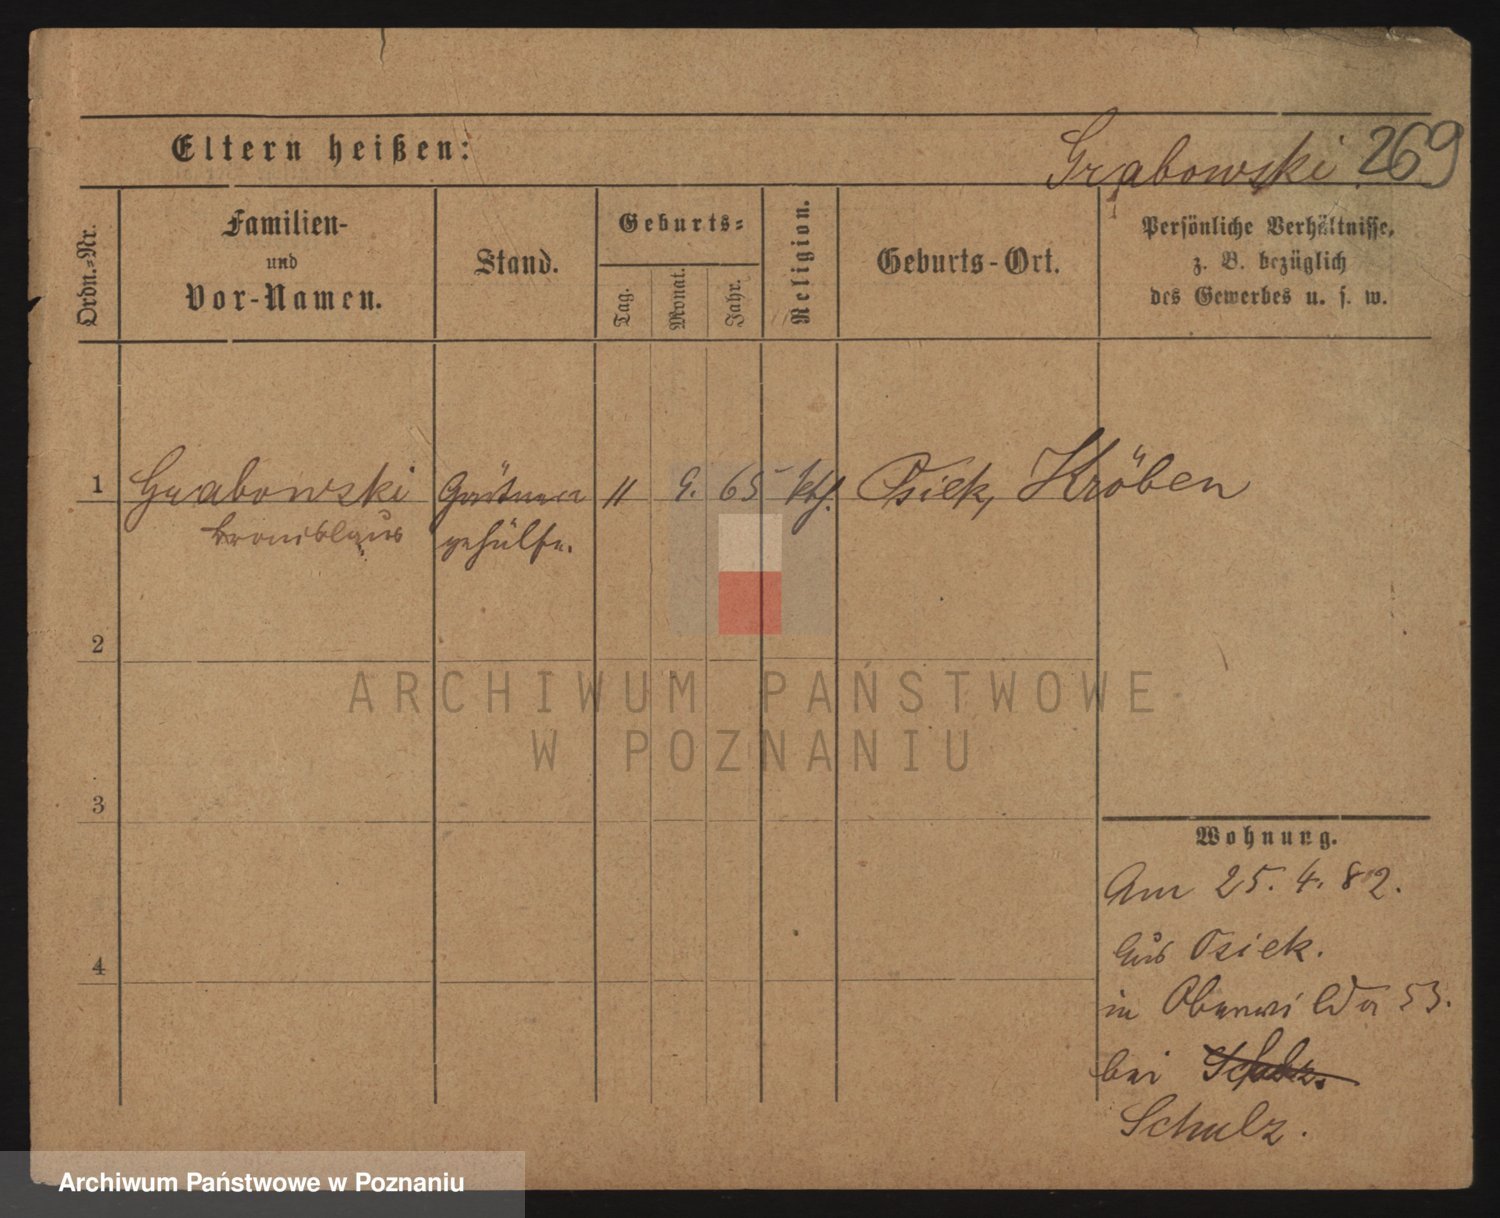 Eltern heißen:
Grabowski 269
Ordn.-Nr.
Familien-
und
Vor-Namen.
Stand.
Geburts-
Tag.
Monat.
Jahr.
Religion.
Geburts-Ort.
Persönliche Verhältnisse,
z. B. bezüglich
des Gewerbes u. s. w.
1 Grabowski Gärtner 11 9. 65 ktf. Osiek, Kröben
Bronislaus gehülfe.
2
3
4
Wohnung.
Am 25. 4. 82.
Aus Osiek.
in Oberwilda 53.
bei
Schulz.
ARCHIWUM PAŃSTWOWE
W POZNANIU
Archiwum Państwowe w Poznaniu